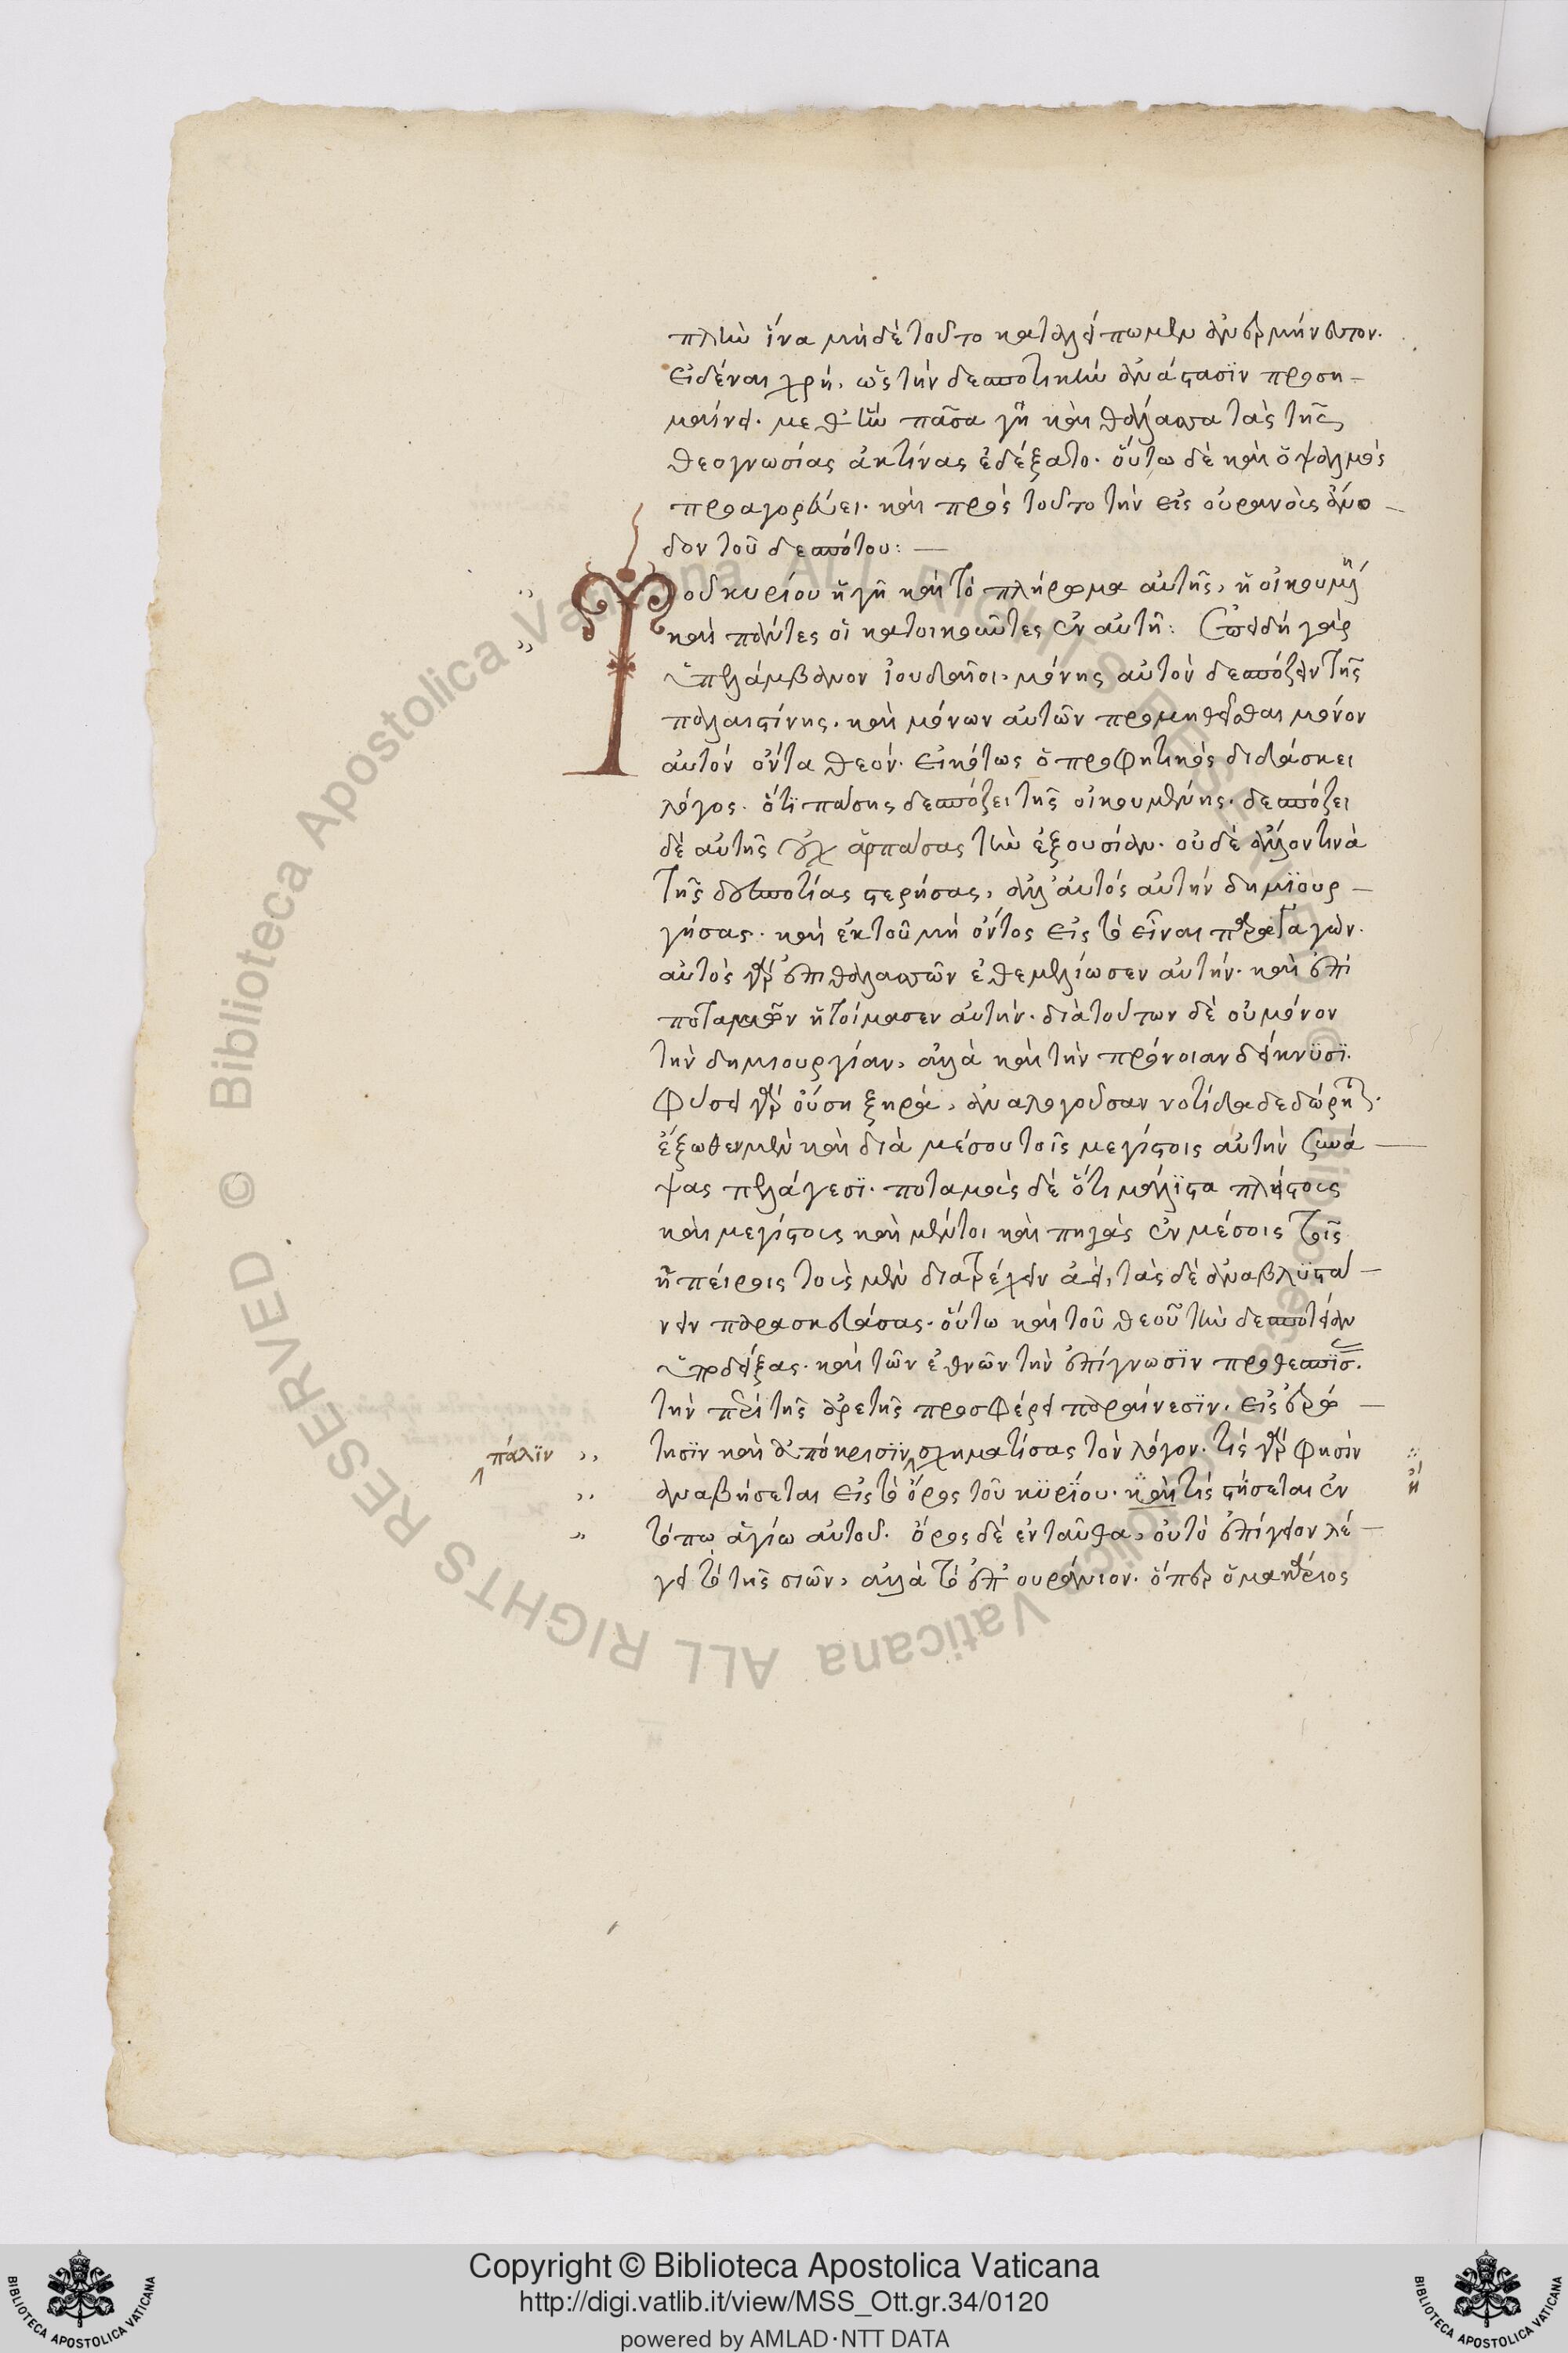 πλὴν ἵνα μηδὲ τοῦτο καταλείπωμεν ἀνερμήνευτον.
εἰδέναι χρή, ὡς τὴν δεσποτικὴν ἀνάστασϊν προση-
μαίνει. μεθ' ἣν πᾶσα γῆ καὶ θάλασσα τὰς τῆς
θεογνωσίας ἀκτίνας ἐδέξατο. οὕτω δὲ καὶ ὁ ψαλμὸς
προαγορεύει. καὶ πρὸς τοῦτο τὴν εἰς οὐρανοὺς ἄνο-
δον τοῦ δεσπότου: —
Τοῦ κυρίου ἡ γῆ καὶ τὸ πλήρωμα αὐτῆς, ἡ οἰκουμένη
καὶ πάντες οἱ κατοικοῦντες ἐν αὐτῇ: Ἐπειδὴ γὰρ
ὑπελάμβανον ἰουδαῖοι, μόνης αὐτὸν δεσπόζειν τῆς
παλαιστίνης, καὶ μόνων αὐτῶν προμηθεῖσθαι μόνον
αὐτὸν ὄντα θεόν. εἰκότως ὁ προφητικὸς διδάσκει
λόγος. ὅτϊ πάσης δεσπόζει τῆς οἰκουμένης. δεσπόζει
δὲ αὐτῆς οὐχ ἁρπάσας τὴν ἐξουσίαν. οὐδὲ ἄλλον τινὰ
τῆς δεσποτίας στερήσας, ἀλλ' αὐτὸς αὐτὴν δημϊουρ-
γήσας. καὶ ἐκ τοῦ μὴ ὄντος εἰς τὸ εἶναι παραγαγών.
αὐτὸς γὰρ ἐπὶ θαλασσῶν ἐθεμελίωσεν αὐτήν. καὶ ἐπὶ
ποταμῶν ἡτοίμασεν αὐτήν. διὰ τούτων δὲ οὐ μόνον
τὴν δημιουργίαν, ἀλλὰ καὶ τὴν πρόνοιαν δείκνϋσϊ.
φύσει γὰρ οὔση ξηρᾷ, ἀναλογοῦσαν νοτίδα δεδώρηται.
ἔξωθεν μὲν καὶ διὰ μέσου τοῖς μεγίστοις αὐτὴν συνά-
ψας πελάγεσϊ. ποταμοὺς δὲ ὅτι μάλϊστα πλείστους
καὶ μεγίστους καὶ μέντοι καὶ πηγὰς ἐν μέσοις ταῖς
ἠπείροις τοὺς μὲν διατρέχειν ἀεί, τὰς δὲ ἀναβλϋστά-
νειν παρασκευάσας. οὕτω καὶ τοῦ θεοῦ τὴν δεσποτείαν
ὑποδείξας. καὶ τῶν ἐθνῶν τὴν ἐπίγνωσϊν προθεσπϊσ.
τὴν περὶ τῆς ἀρετῆς προσφέρει παραίνεσϊν. εἰς ἐρώ-
πάλϊν τησϊν καὶ ἀπόκρισϊν σχηματίσας τὸν λόγον. τίς γὰρ φησὶν
ἀναβήσεται εἰς τὸ ὄρος τοῦ κϋρίου. καὶ τίς στήσεται ἐν ἢ
τόπω ἁγίω αὐτοῦ. ὄρος δὲ ἐνταῦθα, οὐ τὸ ἐπίγειον λέ-
γει τὸ τῆς σιῶν, ἀλλὰ τὸ ἐπουράνιον. ὅπερ ὁ μακάριος
Copyright © Biblioteca Apostolica Vaticana
http://digi.vatlib.it/view/MSS_Ott.gr.34/0120
powered by AMLAD·NTT DATA
BIBLIOTECA APOSTOLICA VATICANA
BIBLIOTECA APOSTOLICA VATICANA
© Biblioteca Apostolica Vaticana ALL RIGHTS RESERVED © Biblioteca Apostolica Vaticana ALL RIGHTS RESERVED